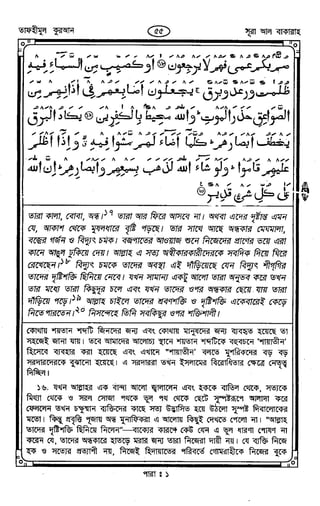 তাফহীমুল কুরআন ৫৫ সূরা আল বাকারাহ
صم بكم عمى فهم لا يرجعون ۝ او كصيب من السماء فيه
ظلمت ورعد وبرق يجعلون اصابعهم فى اذانهم من
الصواعق حذر الموت والله محيط بالكفرين ۝ يكاد البرق
يخطف ابصارهم كلما اضاء لهم مشوا فيه واذا اظلم
عليهم قاموا ولو شاء الله لذهب بسمعهم وابصارهم ان الله
على كل شىء قدير ۝
তারা কালা, বোবা, অন্ধ।১৭ তারা আর ফিরে আসবে না। অথবা এদের দৃষ্টান্ত এমন
যে, আকাশ থেকে মুষলধারে বৃষ্টি পড়ছে। তার সাথে আছে অন্ধকার মেঘমালা,
বজ্রের গর্জন ও বিদ্যুৎ চমক। বজ্রপাতের আওয়াজ শুনে নিজেদের প্রাণের ভয়ে এরা
কানে আঙুল ঢুকিয়ে দেয়। আল্লাহ এ সত্য অস্বীকারকারীদেরকে সবদিক দিয়ে ঘিরে
রেখেছেন।১৮ বিদ্যুৎ চমকে তাদের অবস্থা এই দাঁড়িয়েছে যেন বিদ্যুৎ শীগগির
তাদের দৃষ্টিশক্তি ছিনিয়ে নেবে। যখন সামান্য একটু আলো তারা অনুভব করে তখন
তার মধ্যে তারা কিছুদূর চলে এবং যখন তাদের ওপর অন্ধকার ছেয়ে যায় তারা
দাঁড়িয়ে পড়ে।১৯ আল্লাহ চাইলে তাদের শ্রবণশক্তি ও দৃষ্টিশক্তি একেবারেই কেড়ে
নিতে পারতেন।২০ নিঃসন্দেহে তিনি সবকিছুর ওপর শক্তিশালী।
কোথাও শয়তান শব্দটি জিনদের জন্য এবং কোথাও মানুষদের জন্য ব্যবহৃত হয়েছে তা
সহজেই জানা যায়। তবে আমাদের আলোচ্য স্থানে শয়তান শব্দটিকে বহুবচনে 'শায়াতীন'
হিসেবে ব্যবহার করা হয়েছে এবং এখানে "শায়াতীন" বলতে মুশরিকদের বড় বড়
সরদারদেরকে বুঝানো হয়েছে। এ সরদাররা তখন ইসলামের বিরোধিতার ক্ষেত্রে নেতৃত্ব
দিচ্ছিল।
১৬. যখন আল্লাহর এক বান্দা আলো জ্বালালেন এবং হককে বাতিল থেকে, সত্যকে
মিথ্যা থেকে ও সরল সোজা পথকে ভুল পথ থেকে ছেটে সুস্পষ্টরূপে আলাদা করে
ফেললেন তখন চক্ষুষ্মান ব্যক্তিদের কাছে সত্য উদ্ভাসিত হয়ে উঠলো সুস্পষ্ট দিবালোকের
মতো। কিন্তু প্রবৃত্তি পূজায় অন্ধ মুনাফিকরা এ আলোয় কিছুই দেখতে পেলো না। "আল্লাহ
তাদের দৃষ্টিশক্তি ছিনিয়ে নিলেন"—বাক্যের কারণে কেউ যেন এ ভুল ধারণা পোষণ না
করেন যে, তাদের অন্ধকারে হাতড়ে মরার জন্য তারা নিজেরা দায়ী নয়। যে ব্যক্তি নিজে
হক ও সত্যের প্রত্যাশী নয়, নিজেই হিদায়াতের পরিবর্তে গোমরাহীকে নিজের বুকে
পারা : ১